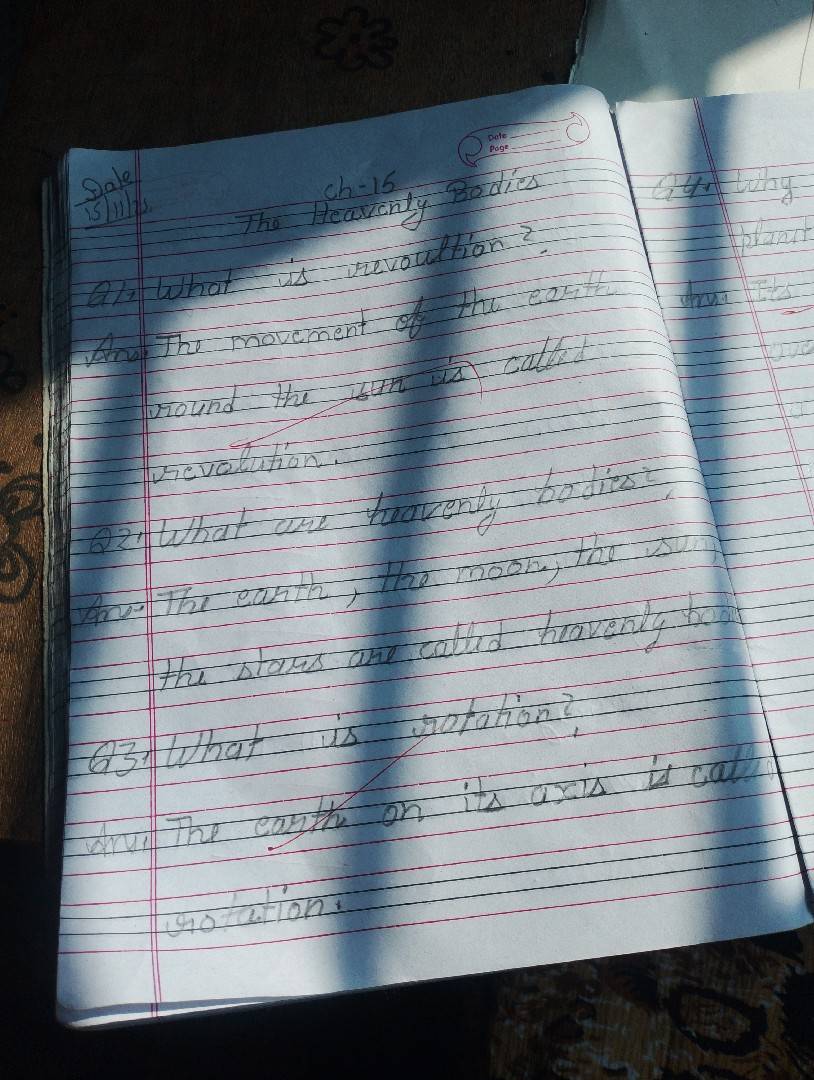 Date
Page
Date
15/11/25
Ch-15
The Heavenly Bodies
Q1. What is revoultion?
Ans. The movement of the earth
round the sun is called
revolution.
Q2. What are heavenly bodies?
Ans. The earth, the moon, the sun
the stars are called heavenly
Q3. What is rotation?
Ans. The earth on its axis is
rotation.
Q4. Why
Ans. Its